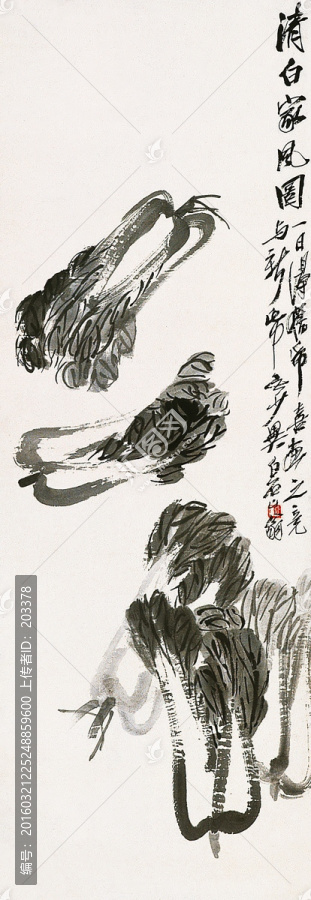 清白家風圖一日得舊帋喜畫之竟
与新帋无少異白石山翁
编号:20160321225248859600 上传者ID:203378